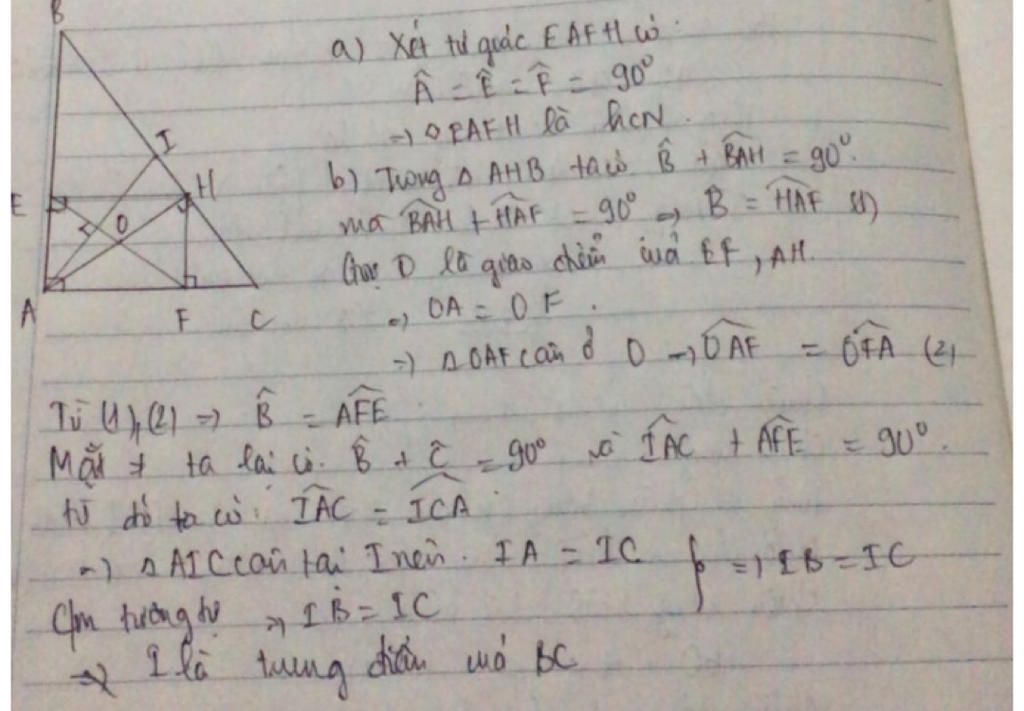 B
I
E
H
O
A
F
C
a) Xét tứ giác EAFH có
Â = Ê = F̂ = 90°
⇒ ◇EAFH là hcN.
b) Trong Δ AHB ta có B̂ + BAĤ = 90°.
mà BAĤ + HAF̂ = 90° ⇒ B = HAF̂ (1)
Gọi O là giao điểm của EF, AH.
⇒ OA = OF.
⇒ Δ OAF cân ở O → OAF̂ = OFÂ (2)
Từ (1), (2) ⇒ B̂ = AFÊ
Mặt ≠ ta lại có. B̂ + Ĉ = 90° và IAĈ + AFÊ = 90°.
từ đó ta có: IAĈ = ICÂ
⇒ Δ AIC cân tại I nên. IA = IC } ⇒ IB = IC
C/m tương tự ⇒ IB = IC
⇒ I là trung điểm của BC